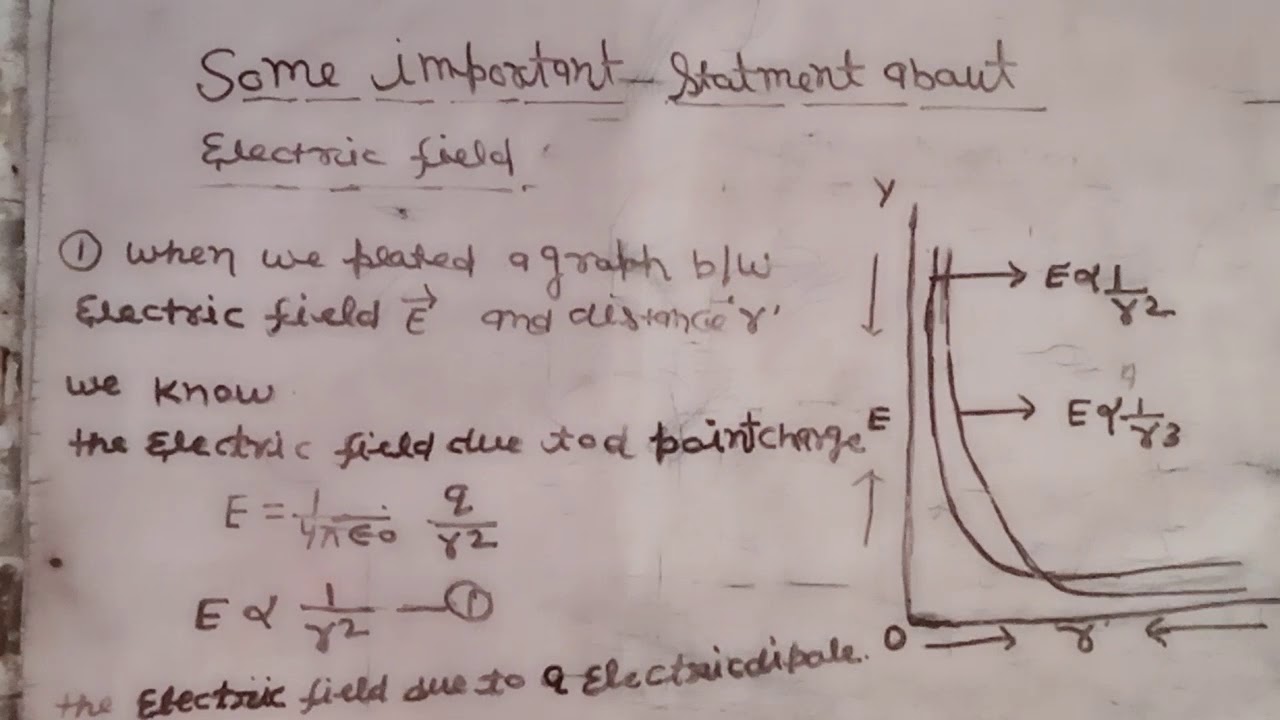 Some important Statment about
Electric field.
① when we plated a graph b/w
Electric field E⃗ and distance r'
we know
the Electric field due to a point charge
E = 1/4π∈0 q/r2
E ∝ 1/r2 —①
the Electric field due to a Electric dipole.
Y
E ∝ 1/r2
E ∝ 1/r3
E
O
r